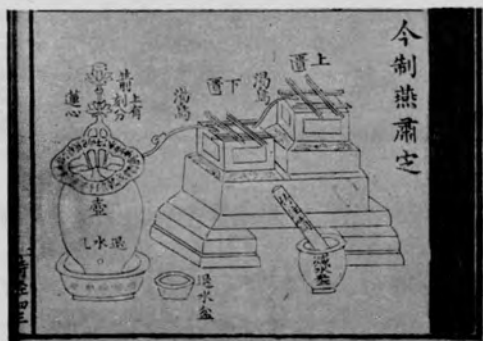 今制燕肅定
上匱
渴烏
下匱
渴烏
箭上有刻分
蓮心
壺
退水孔
退水盆
減水盎